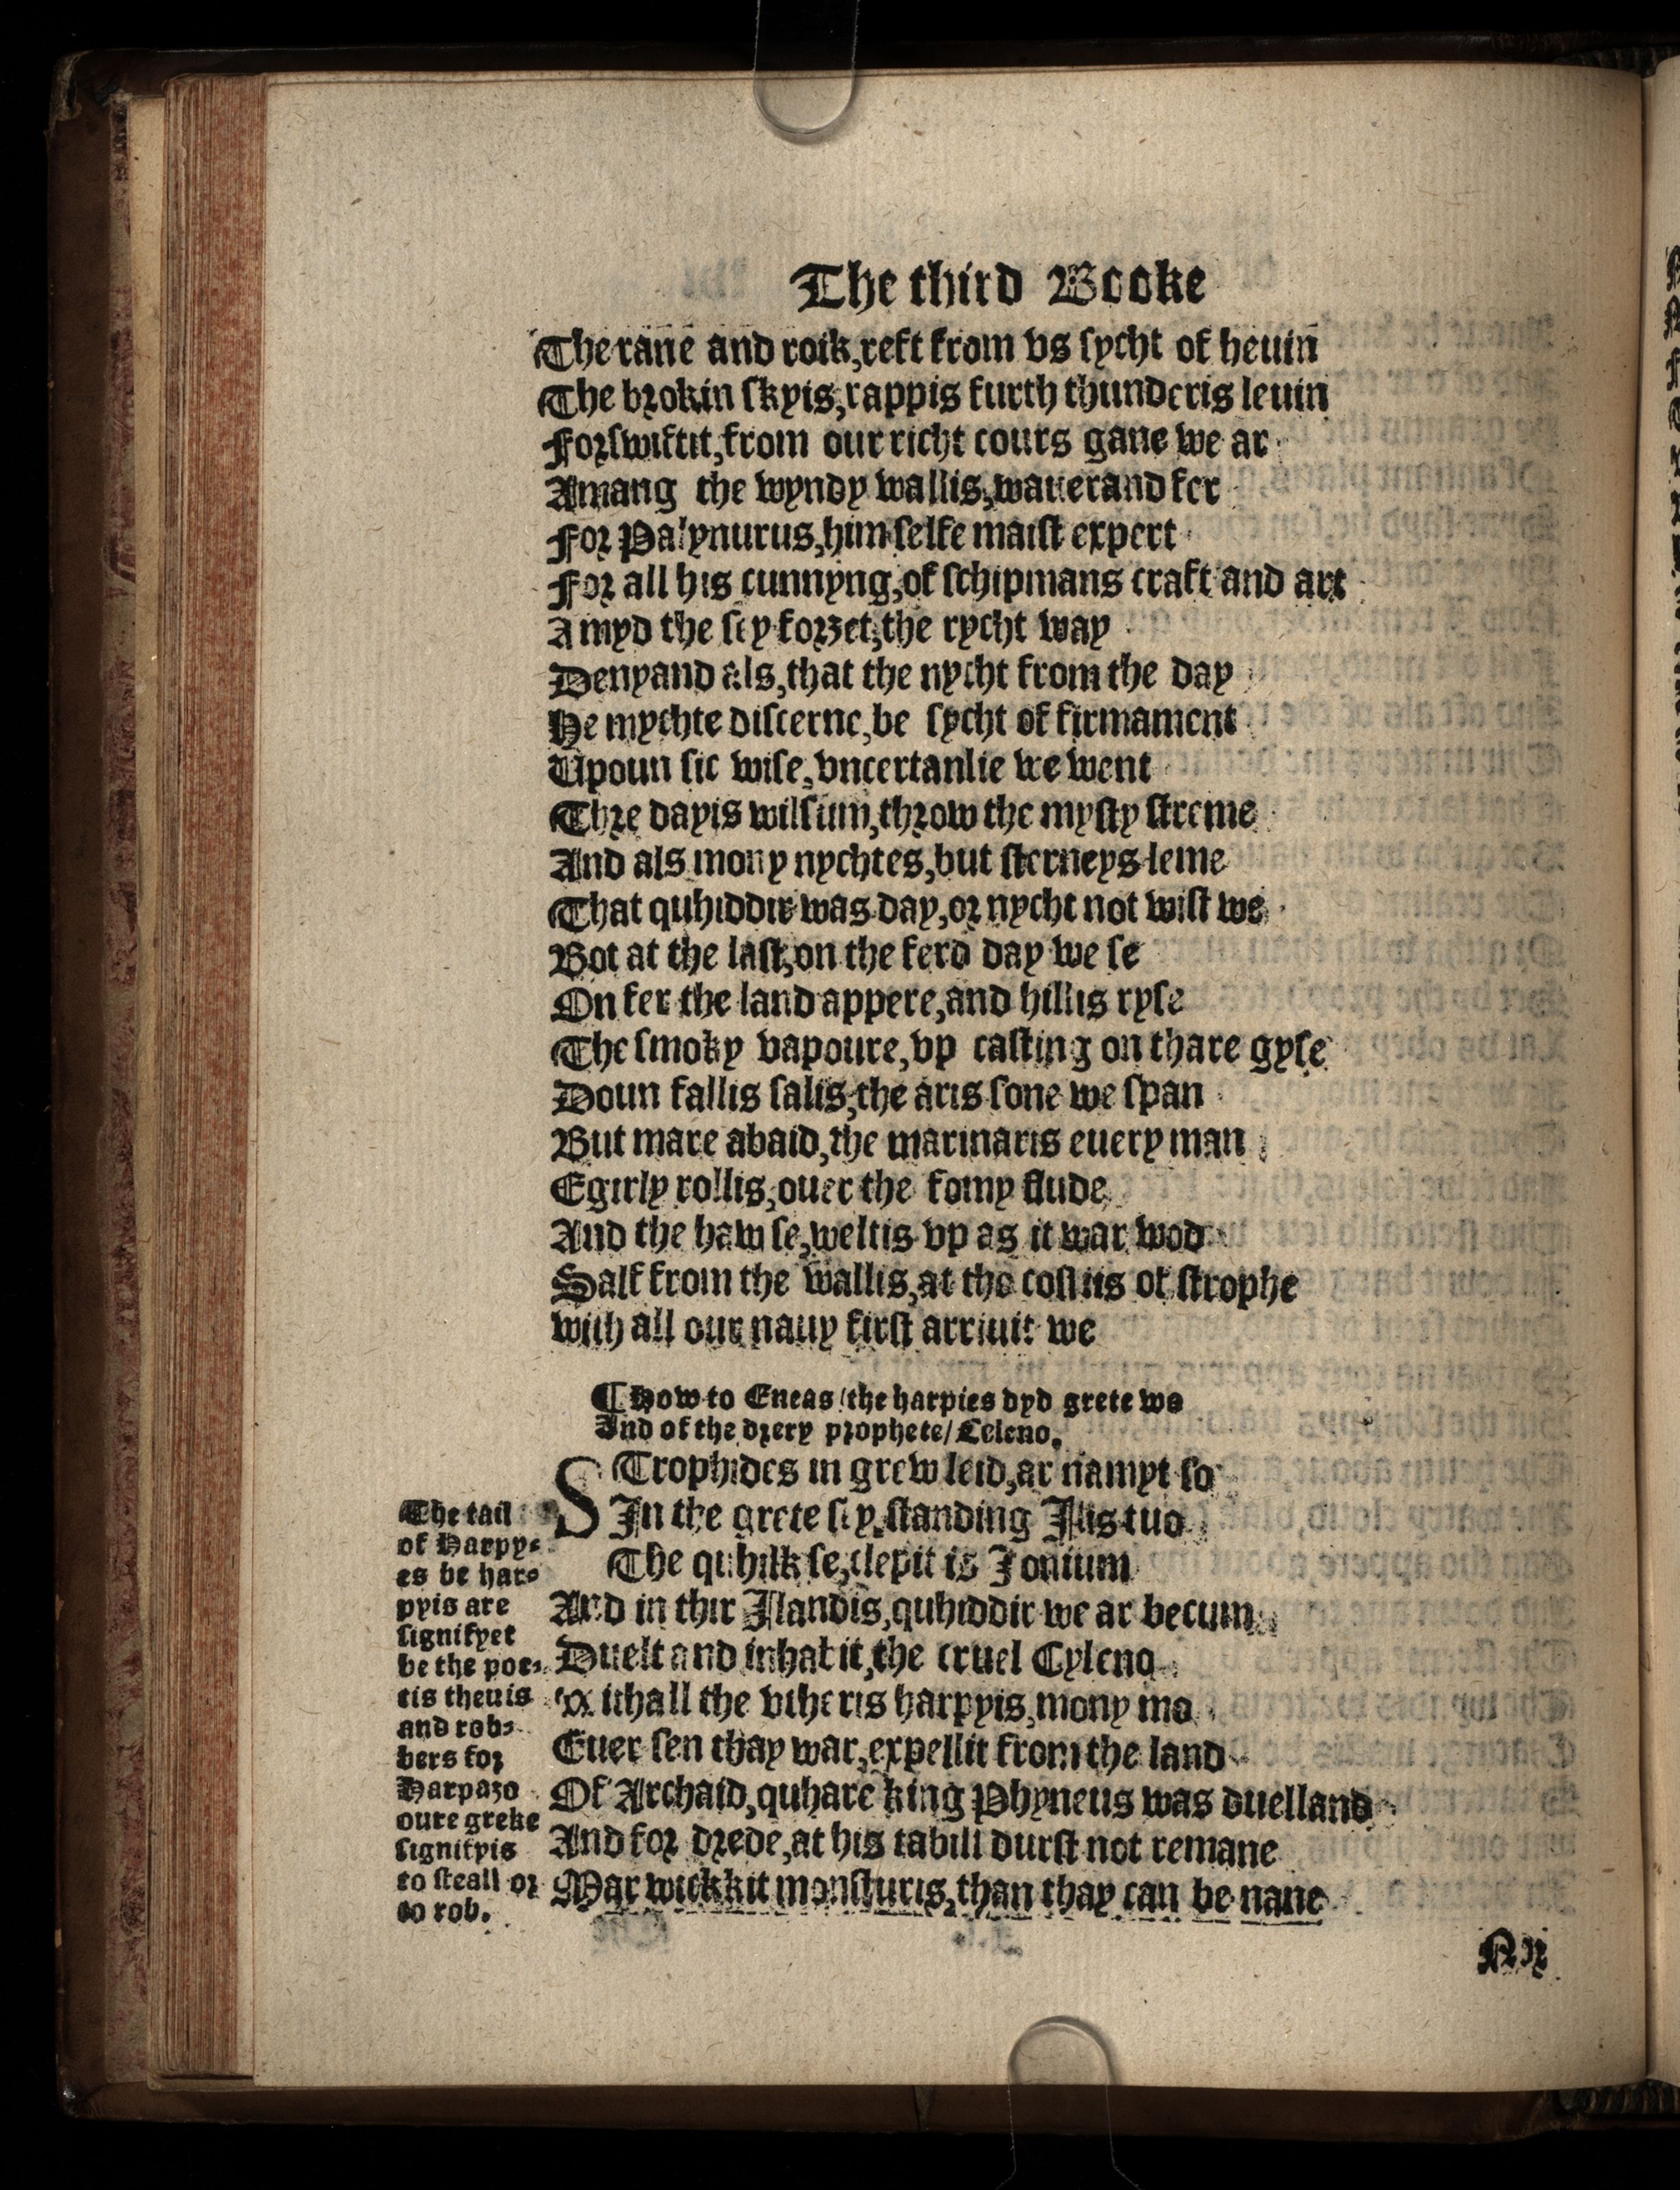 The third Booke
The rane and roik, reft from vs sycht of heuin
The brokin skyis, rappis furth thunderis leuin
Forswiftit, from our richt cours gane we ar
Amang the wyndy wallis, wauerand fer
For Palynurus, him selfe maist expert
For all his cunnyng, of schipmans craft and art
Amyd the sey forȝet, the rycht way
Denyand als, that the nycht from the day
He mychte discerne, be sycht of firmament
Upoun sic wise, vncertanlie we went
Thre dayis wilsum, throw the mysty streme
And als mony nychtes, but sterneys leme
That quhiddir was day, or nycht not wist we
Bot at the last, on the ferd day we se
On fer the land appere, and hillis ryse
The smoky vapoure, vp casting on thare gyse
Doun fallis salis, the aris sone we span
But mare abaid, the marinaris euery man
Egirly rollis, ouer the fomy flude
And the haw se, weltis vp as it war wod
Salf from the wallis, at the costis of strophe
with all our nauy first arriuit we
¶ How to Eneas / the harpies dyd grete wo
And of the drery prophete / Celeno.
STrophides in grew leid, ar namyt so
In the grete sey, standing Ilis tuo
The quhilk se, clepit is Ionium
And in thir Ilandis, quhiddir we ar becum
Duelt and inhabit, the cruel Cyleno
withall the vtheris harpyis, mony mo
Euer sen thay war, expellit from the land
Of Archaid, quhare king Phyneus was duelland
And for drede, at his tabill durst not remane
Mar wickkit monsturis, than thay can be nane
The tail
of Harpy-
es be har-
pyis are
signifyet
be the poe-
tis theuis
and rob-
bers for
Harpazo
oure greke
signifyis
to steall or
to rob.
Nor